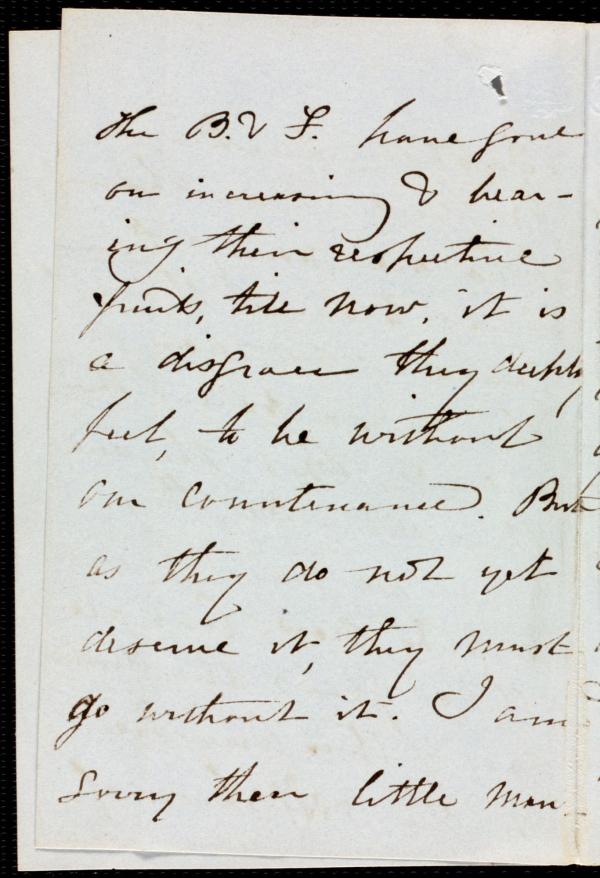 the B. & F. have gone
on increasing & bear-
ing their respective
fruits, till now, it is
a disgrace they deeply
feel, to be without
our countenance. But
as they do not yet
deserve it, they must
go without it. I am
sorry these little men